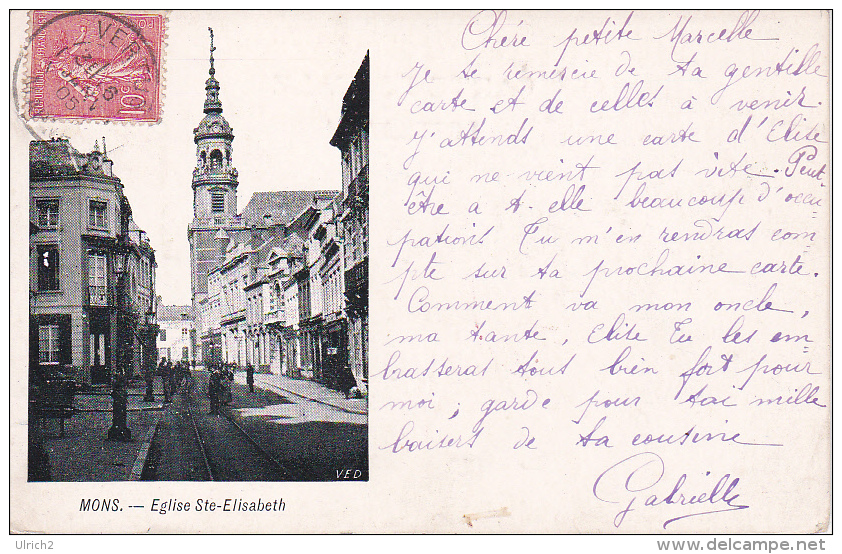 RÉPUBLIQUE FRANÇAISE
10
05
Chére petite Marcelle
Je te remercie de ta gentille
carte et de celles à venir.
J'attends une carte d'Elise
qui ne vient pas vite. Peut
être a t. elle beaucoup d'occu
pations Tu m'en rendras com
pte sur ta prochaine carte.
Comment va mon oncle,
ma tante, Elise Tu les em
brasseras tous bien fort pour
moi ; garde pour toi mille
baisers de ta cousine
Gabrielle
VED
MONS. — Eglise Ste-Elisabeth
www.delcampe.net
Ulrich2